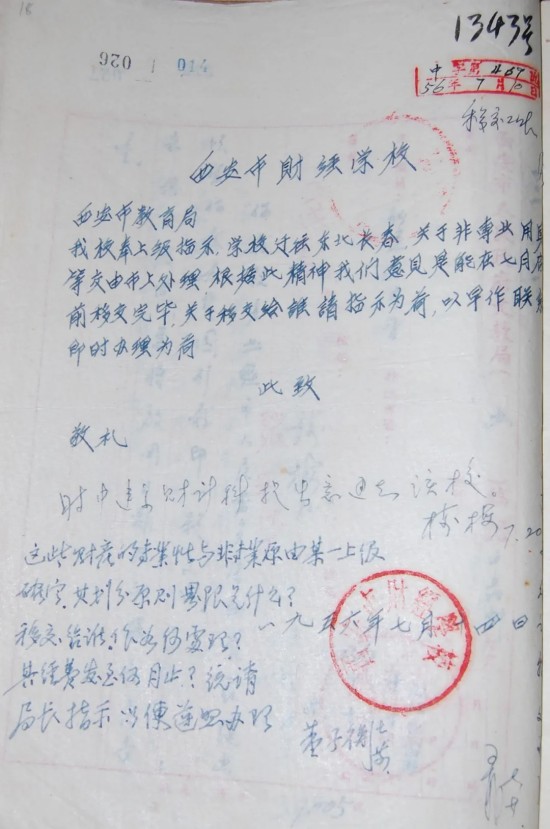 18
1343号
026 | 014
中 字第 467 号
56年7月10日
西安市財經学校
西安市教育局
我校奉上級指示,学校迁往东北长春,关于非专业用具
等交由市上处理,根据此精神我们意见是能在七月底
前移交完毕,关于移交给誰請指示为荷,以早作联系
即时办理为荷
此致
敬礼
7.20
这些财产的专业性与非专业原由某一上级
确定,其划分原则界限是什么?
移交给谁,依如何处理?
一九五六年七月十四日
其经费发至何月止?统请
局长指示以便遵照办理